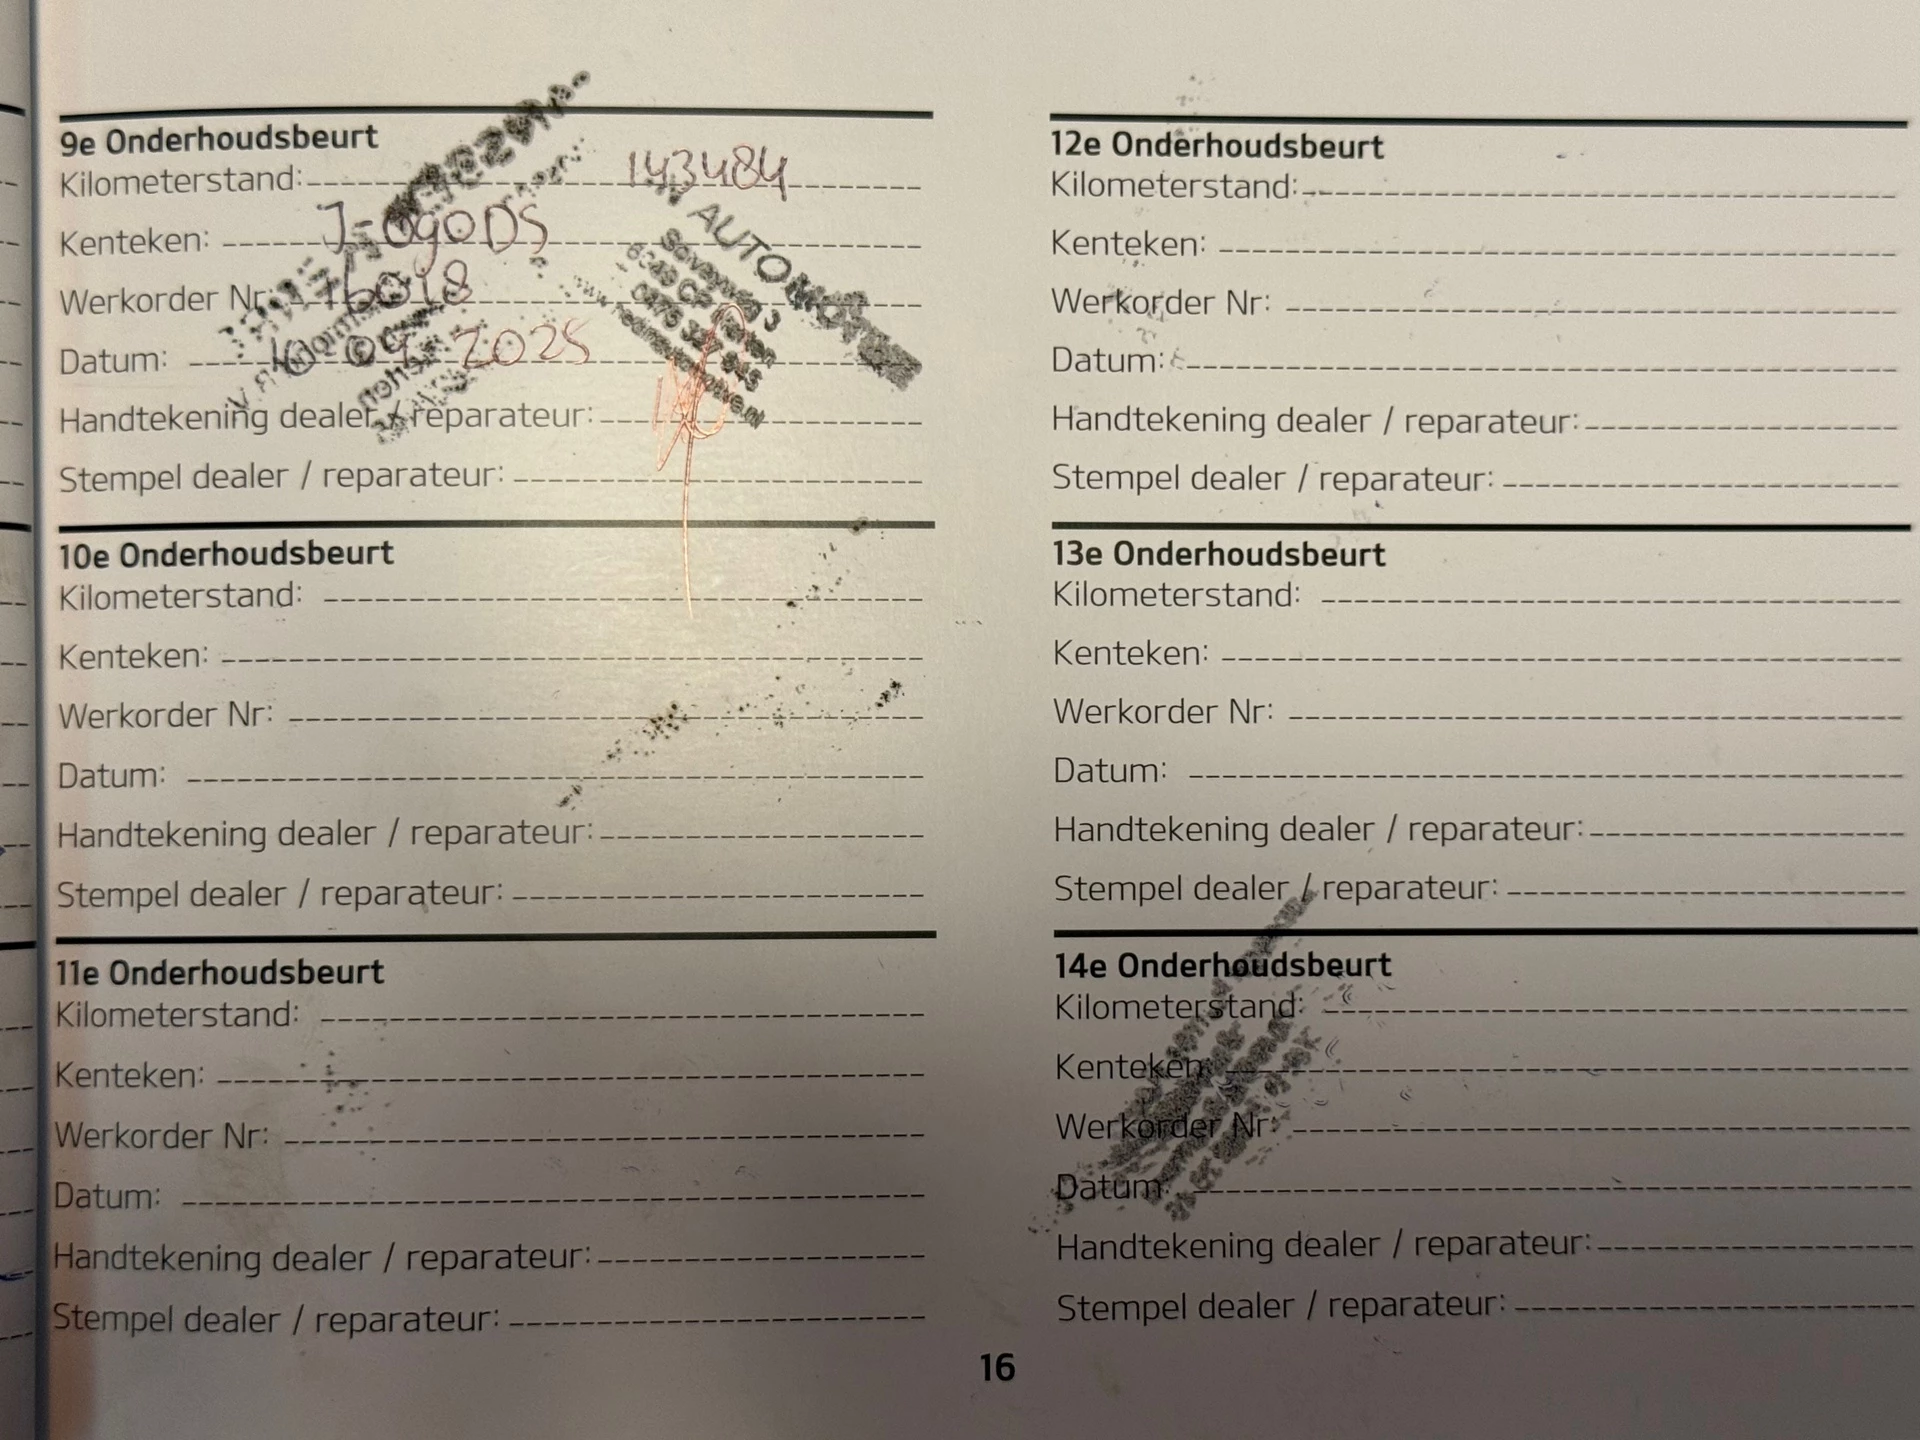 9e Onderhoudsbeurt
Kilometerstand: 143484
Kenteken: J-090DS
Werkorder Nr: 16018
Datum: 10 04 2025
Handtekening dealer / reparateur:
Stempel dealer / reparateur:
AUTOMOTIVE
3
0475 327 545
10e Onderhoudsbeurt
Kilometerstand:
Kenteken:
Werkorder Nr:
Datum:
Handtekening dealer / reparateur:
Stempel dealer / reparateur:
11e Onderhoudsbeurt
Kilometerstand:
Kenteken:
Werkorder Nr:
Datum:
Handtekening dealer / reparateur:
Stempel dealer / reparateur:
12e Onderhoudsbeurt
Kilometerstand:
Kenteken:
Werkorder Nr:
Datum:
Handtekening dealer / reparateur:
Stempel dealer / reparateur:
13e Onderhoudsbeurt
Kilometerstand:
Kenteken:
Werkorder Nr:
Datum:
Handtekening dealer / reparateur:
Stempel dealer / reparateur:
14e Onderhoudsbeurt
Kilometerstand:
Kenteken:
Werkorder Nr:
Datum:
Handtekening dealer / reparateur:
Stempel dealer / reparateur:
16